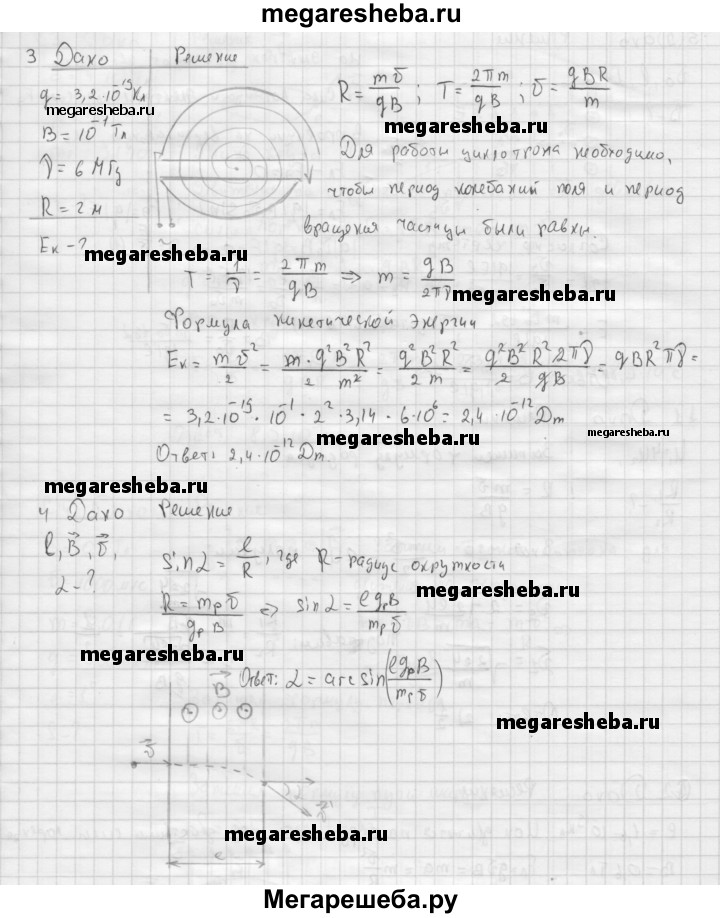 megaresheba.ru
3 Дано Решение
q = 3,2·10⁻¹⁹ Кл
megaresheba.ru
B = 10⁻¹ Тл
γ = 6 МГц
R = 2 м
Eк - ?
R = mυ/qB ; T = 2πm/qB ; υ = qBR/m
megaresheba.ru
Для работы циклотрона необходимо,
чтобы период колебаний поля и период
вращения частицы были равны.
megaresheba.ru
T = 1/γ = 2πm/qB ⇒ m = qB/2πγ
megaresheba.ru
Формула кинетической энергии
Eк = mυ²/2 = m·q²B²R²/2 m² = q²B²R²/2m = q²B²R²2πγ/2 qB = qBR²πγ =
= 3,2·10⁻¹⁹·10⁻¹·2²·3,14·6·10⁶ = 2,4·10⁻¹² Дж
megaresheba.ru
megaresheba.ru
Ответ: 2,4·10⁻¹² Дж.
megaresheba.ru
4 Дано Решение
l, B⃗, υ⃗,
α - ?
sin α = l/R , где R - радиус окружности
megaresheba.ru
R = mₚυ/qₚB ⇒ sin α = lqₚB/mₚυ
megaresheba.ru
Ответ: α = arcsin(lqₚB/mₚυ)
B⃗
megaresheba.ru
υ⃗
α
υ⃗'
megaresheba.ru
l
Мегарешеба.ру